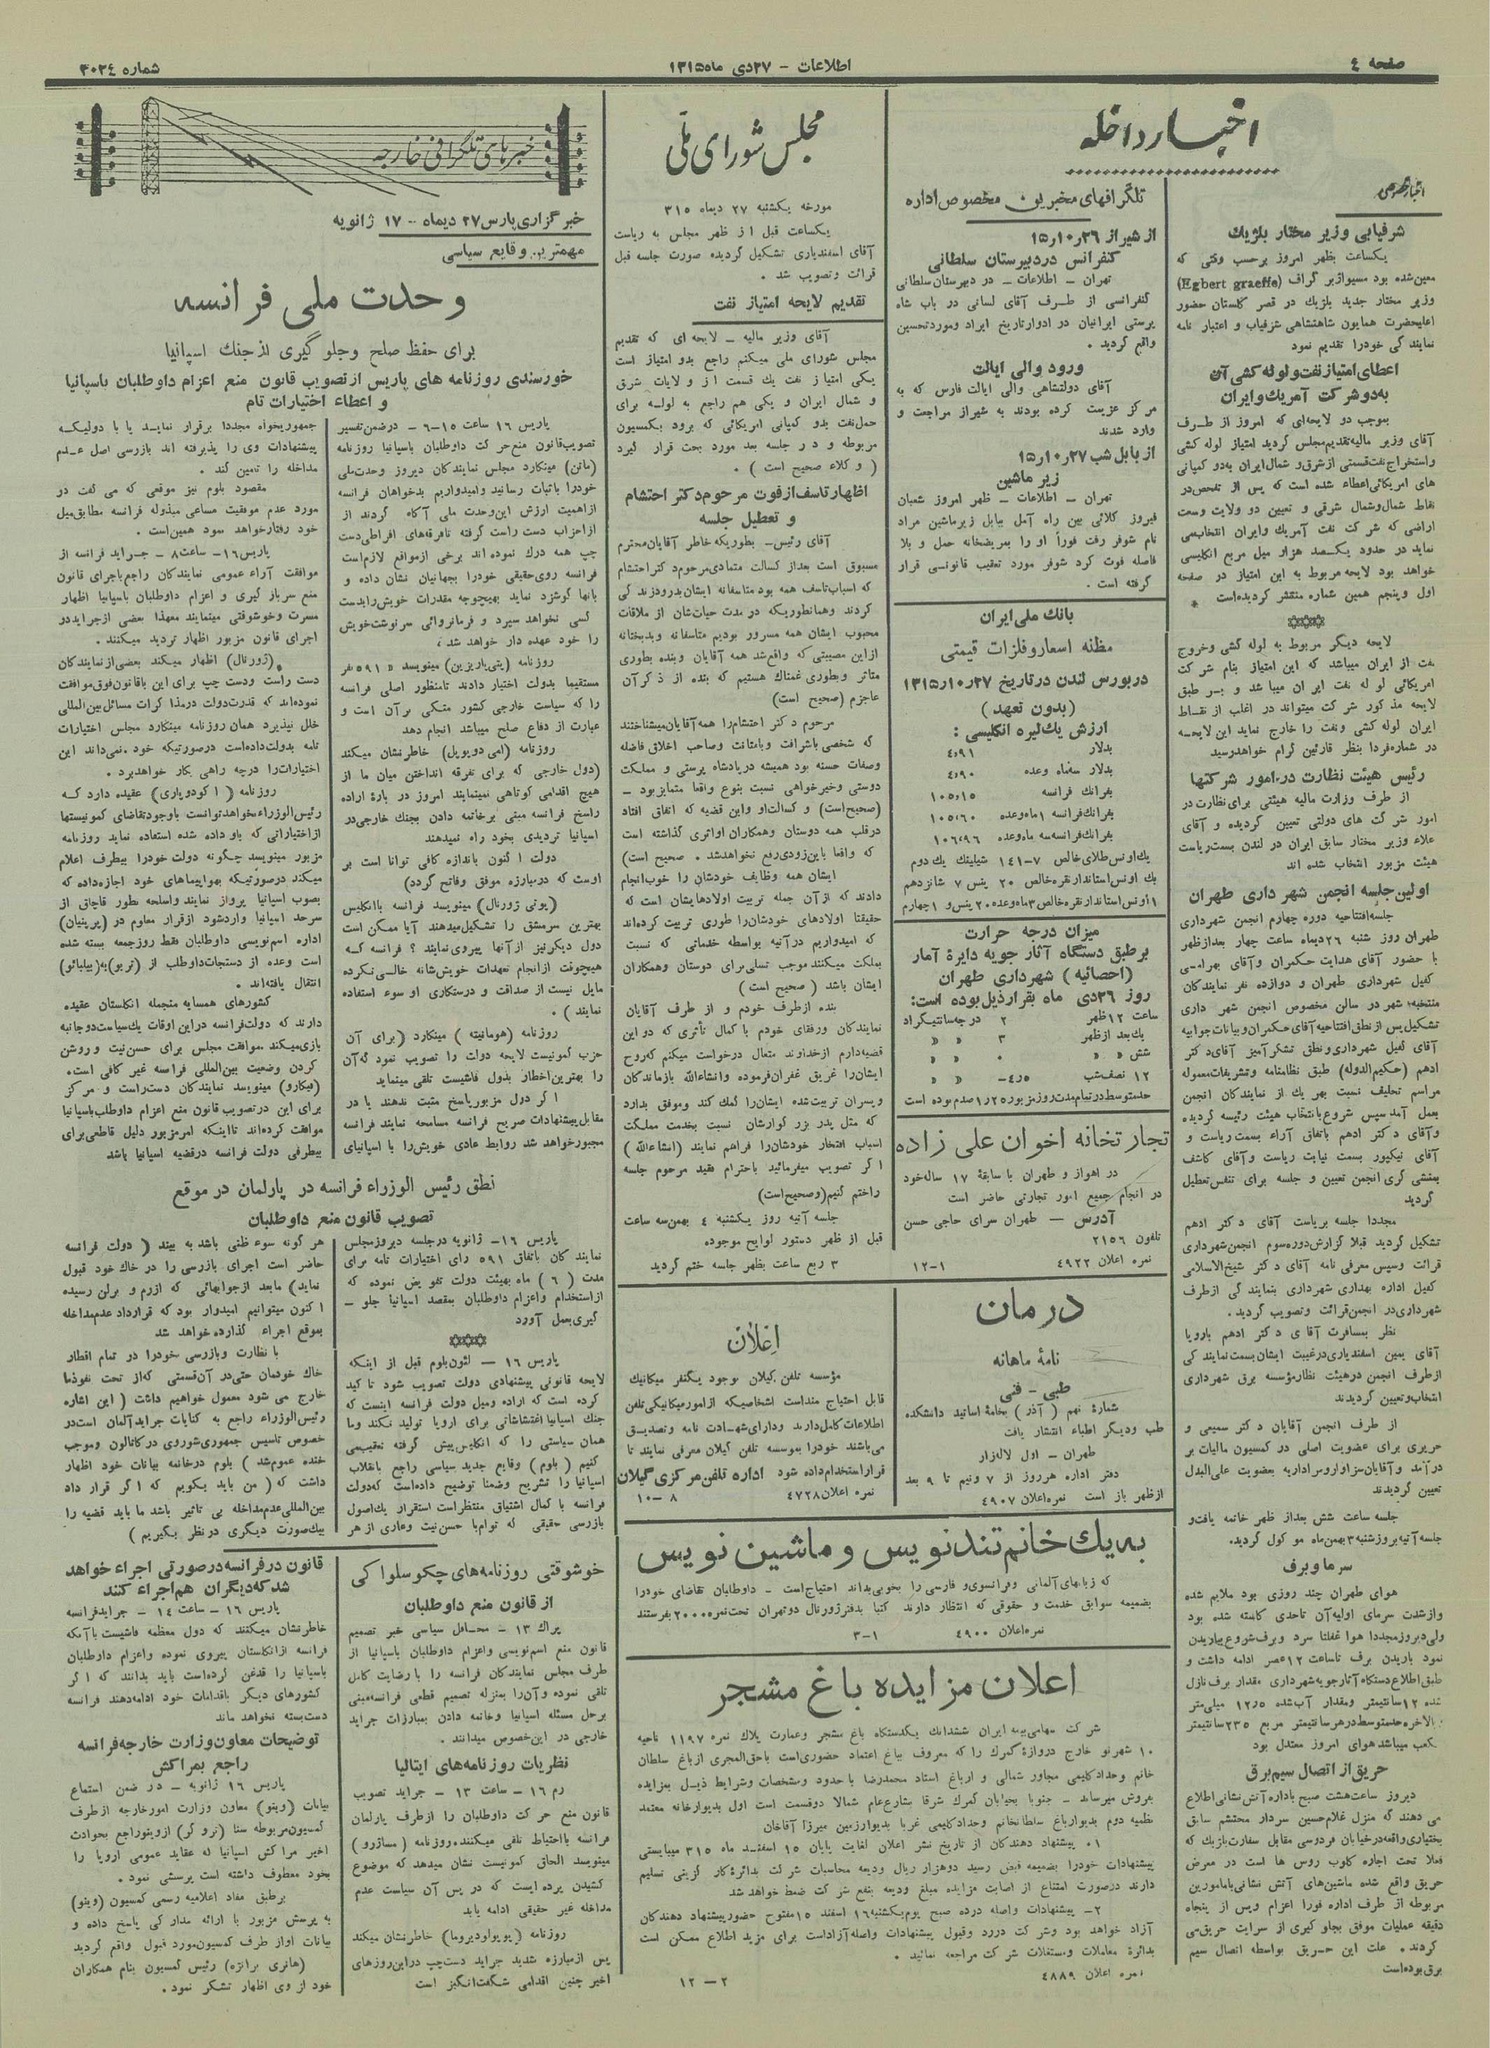 صفحه ٤
اطلاعات - ٢٧دی ماه١٣١٥
شماره ٣٠٣٤
اخبار داخله
شرفیابی وزیر مختار بلژیك
یکساعت بظهر امروز برحسب وقتی که
معین‌شده بود مسیواژبر گراف (Egbert graeffe)
وزیر مختار جدید بلژیك در قصر گلستان حضور
اعلیحضرت همایون شاهنشاهی شرفیاب و اعتبار نامه
نمایند گی خودرا تقدیم نمود
اعطای امتیاز نفت و لوله کشی آن
به‌دو شرکت آمریك و ایران
بموجب دو لایحه‌ای که امروز از طرف
آقای وزیر مالیه تقدیم مجلس گردید امتیاز لوله کشی
واستخراج نفت قسمتی ازشرق و شمال ایران به‌دو کمپانی
های امریکائی اعطاء شده است که پس از تفحص در
نقاط شمال‌وشمال شرقی و تعیین دو ولایت وسعت
اراضی که شرکت نفت آمریك وایران انتخاب‌می
نماید در حدود یك‌صد هزار میل مربع انگلیسی
خواهد بود لایحه مربوط به این امتیاز در صفحه
اول وپنجم همین شماره منتشر گردیده‌است
لایحه دیگر مربوط به لوله کشی وخروج
نفت از ایران میباشد که این امتیاز بنام شرکت
امریکائی لو له نفت ایر ان میبا شد و بسر طبق
لایحه مذ کور شرکت میتواند در اغلب از نقاط
ایران لوله کشی ونفت را خارج نماید این لایحه
در شماره فردا بنظر قارئین گرام خواهدرسید
رئیس هیئت نظارت در امور شرکتها
از طرف وزارت مالیه هیئتی برای نظارت در
امور شرکت های دولتی تعیین گردیده و آقای
علاء وزیر مختار سابق ایران در لندن بسمت ریاست
هیئت مزبور انتخاب شده اند
اولین جلسه انجمن شهرداری طهران
جلسه‌افتتاحیه دوره چهارم انجمن شهرداری
طهران روز شنبه ٢٦دیماه ساعت چهار بعدازظهر
با حضور آقای هدایت حکمران وآقای بهرامی
کفیل شهرداری طهران و دوازده نفر نمایندگان
منتخبه شهر در سالن مخصوص انجمن شهر داری
تشکیل‌پس از نطق افتتاحیه آقای حکمران وبیانات جوابیه
آقای کفیل شهرداری و نطق تشکر آمیز آقای دکتر
ادهم (حکیم‌الدوله) طبق نظامنامه وتشریفات معموله
مراسم تحلیف نسبت بهر یك از نمایندگان انجمن
بعمل آمد سپس شروع بانتخاب هیئت رئیسه گردیده
وآقای دکتر ادهم باتفاق آراء بسمت ریاست و
آقای نیکپور بسمت نیابت ریاست وآقای کاشف
بمنشی گری انجمن تعیین و جلسه برای تنفس تعطیل
گردید
مجددا جلسه بریاست آقای دکتر ادهم
تشکیل گردید قبلا گزارش دوره سوم انجمن شهرداری
قرائت وسپس معرفی نامه آقای دکتر شیخ‌الاسلامی
کفیل اداره بهداری شهرداری بنمایندگی ازطرف
شهرداری در انجمن قرائت وتصویب گردید.
نظر بمسافرت آقای دکتر ادهم باروپا
آقای یمین اسفندیاری درغیبت ایشان بسمت نمایندگی
ازطرف انجمن درهیئت نظار مؤسسه برق شهرداری
انتخاب وتعیین گردیدند
از طرف انجمن آقایان دکتر سمیعی و
حریری برای عضویت اصلی در کمسیون مالیات بر
درآمد وآقایان سزاوار وسرداریه بعضویت علی‌البدل
تعیین گردیدند
جلسه ساعت شش بعداز ظهر خاتمه یافت و
جلسه آتیه بروزشنبه ٣بهمن‌ماه موکول گردید.
سرما و برف
هوای طهران چند روزی بود ملایم شده
وازشدت سرمای اولیه‌آن تاحدی کاسته شده بود
ولی دیروز مجددا هوا غفلتا سرد وبرف شروع بباریدن
نمود باریدن برف تاساعت ١٢عصر ادامه داشت و
طبق اطلاع دستگاه آثارجویه شهرداری مقدار برف نازل
شده ١٢سانتیمتر ومقدار آب‌شده ١٢٫٥ میلی‌متر
مکعب میباشد هوای امروز معتدل بود
حریق از اتصال سیم برق
دیروز ساعت‌هشت صبح باداره آتش‌نشانی اطلاع
می دهند که منزل غلامحسین سردار محتشم سابق
بختیاری‌واقعه درخیابان فردوسی مقابل سفارت‌بلژیك که
فعلا تحت اجاره کلوب روس ها است در معرض
حریق واقع شده ماشین‌های آتش نشانی بامامورین
مربوطه از طرف اداره فورا اعزام وپس از پنجاه
دقیقه عملیات موفق بجلو گیری از سرایت حریق‌می
گردند. علت این حریق بواسطه اتصال سیم
برق بوده‌است
تلگرافهای مخبرین مخصوص اداره
از شیراز ٢٦ر١٠ر١٥
کنفرانس در دبیرستان سلطانی
تهران - اطلاعات - در دبیرستان سلطانی
کنفرانسی از طرف آقای لسانی در باب شاه
پرستی ایرانیان در ادوارتاریخ ایراد ومورد تحسین
واقع گردید.
ورود والی ایالت
آقای دولتشاهی والی ایالت فارس که به
مرکز عزیمت کرده بودند به شیراز مراجعت و
وارد شدند
از بابل شب ٢٧ر١٠ر١٥
زیر ماشین
تهران - اطلاعات - ظهر امروز شعبان
فیروز کلائی بین راه آمل ببابل زیرماشین مراد
نام شوفر رفت فوراً او را بمریضخانه حمل و بلا
فاصله فوت کرد شوفر مورد تعقیب قانونی قرار
گرفته است.
بانك ملی ایران
مظنه اسعار و فلزات قیمتی
در بورس لندن در تاریخ ٢٧ر١٠ر١٣١٥
(بدون تعهد)
ارزش یك لیره انگلیسی:
بدلار ٤٫٩١
بدلار سه‌ماه وعده ٤٫٩٠
بفرانك فرانسه ١٠٥٫١٥
بفرانك فرانسه ١ماه‌وعده ١٠٥٫٦٠
بفرانك فرانسه سه ماه‌وعده ١٠٦٫٩٦
یك اونس طلای خالص ٧-١٤١ شیلینك یك دوم
یك اونس استاندار نقره خالص ٢٠ پنس ٧ شانزدهم
١ اونس استاندار نقره خالص ٢ماه‌وعده ٢٠پنس و ١چهارم
میزان درجه حرارت
بر طبق دستگاه آثار جویه دایرهٔ آمار
(احصائیه) شهرداری طهران
روز ٢٦دی ماه بقرارذیل بوده است:
ساعت ١٢ظهر ٢ درجه‌سانتیگراد
یك‌بعد ازظهر ٣ « «
شش « « ٠ « «
١٢ نصف‌شب ٤٫٥- « «
حدمتوسط درتمام مدت روز مزبور ١٫٢٥صدم بوده است
تجارتخانه اخوان علی زاده
در اهواز و طهران با سابقهٔ ١٧ ساله‌خود
در انجام جمیع امور تجارتی حاضر است
آدرس - طهران سرای حاجی حسن
تلفون ٢١٥٦
نمره اعلان ٤٩٢٢ ١-١٢
درمان
نامهٔ ماهانه
طبی - فنی
شمارهٔ نهم (آذر) بخامهٔ اساتید دانشکده
طب ودیگر اطباء انتشار یافت
طهران - اول لاله‌زار
دفتر اداره هرروز از ٧ ونیم تا ٩ بعد
ازظهر باز است نمره‌اعلان ٤٩٠٧
مجلس شورای ملی
مورخه یکشنبه ٢٧ دیماه ٣١٥
یکساعت قبل از ظهر مجلس به ریاست
آقای اسفندیاری تشکیل گردیده صورت جلسه قبل
قرائت وتصویب شد.
تقدیم لایحه امتیاز نفت
آقای وزیر مالیه - لایحه ای که تقدیم
مجلس شورای ملی میکنم راجع بدو امتیاز است
یکی امتیاز نفت یك قسمت از ولایات شرق
و شمال ایران و یکی هم راجع به لوله برای
حمل‌نفت بدو کمپانی امریکائی که برود بکمسیون
مربوطه و در جلسه بعد مورد بحث قرار گیرد
(وکلاء صحیح است).
اظهار تاسف از فوت مرحوم دکتر احتشام
و تعطیل جلسه
آقای رئیس- بطوریکه خاطر آقایان‌محترم
مسبوق است بعداز کسالت متمادی مرحوم دکتر احتشام
که اسباب‌تاسف همه بود متاسفانه ایشان بدرود زندگی
کردند وهمانطوریکه در مدت حیات‌شان از ملاقات
محبوب ایشان همه مسرور بودیم متاسفانه وبدبختانه
ازاین مصیبتی که واقع‌شد همه آقایان وبنده بطوری
متاثر وبطوری غمناك هستیم که بنده از ذکر آن
عاجزم (صحیح است)
مرحوم دکتر احتشام‌را همه‌آقایان‌میشناختند
که شخصی باشرافت وبامتانت وصاحب اخلاق فاضله
وصفات حسنه بود همیشه دریادشاه پرستی و مملکت
دوستی وخیرخواهی نسبت بنوع واقعا متمایزبود -
(صحیح‌است) و کسالت‌او واین قضیه که اتفاق افتاد
درقلب همه دوستان وهمکاران اواثری گذاشته است
که واقعا باین زودی رفع نخواهدشد. صحیح است)
ایشان همه وظایف خودشان را خوب‌انجام
دادند که ازآن جمله تربیت اولادهایشان است که
حقیقتا اولادهای خودشان‌را طوری تربیت کرده‌اند
که امیدواریم درآتیه بواسطه خدماتی که نسبت
بملکت میکنند موجب تسلی‌برای دوستان وهمکاران
ایشان باشد (صحیح است)
بنده ازطرف خودم و از طرف آقایان
نمایندگان ورفقای خودم با کمال تأثری که دراین
قضیه‌دارم ازخداوند متعال درخواست میکنم که‌روح
ایشان‌را غریق غفران‌فرموده وانشاءالله بازماندگان
وپسران تربیت‌شده ایشان‌را کمك کند وموفق بدارد
که مثل پدر بزر گوارشان نسبت بخدمت مملکت
اسباب افتخار خودشان‌را فراهم نمایند (انشاءالله)
اگر تصویب میفرمائید باحترام فقید مرحوم جلسه
راختم کنیم (وصحیح‌است)
جلسه آتیه روز یکشنبه ٤ بهمن‌سه ساعت
قبل از ظهر دستور لوایح موجوده.
٣ ربع ساعت بظهر جلسه ختم گردید
اعلان
مؤسسه تلفن گیلان بوجود یکنفر میکانیك
قابل احتیاج منداست اشخاصیکه ازامور میکانیکی تلفن
اطلاعات کامل‌دارند ودارای شهادت نامه وتصدیق
می‌باشند خودرا بموسسه تلفن گیلان معرفی نمایند تا
قرار استخدام داده شود اداره تلفن مرکزی گیلان
نمره اعلان ٤٧٢٨ ٨-١٠
به یك خانم تند نویس و ماشین نویس
که زبانهای آلمانی وفرانسوی و فارسی را بخوبی‌بداند احتیاج‌است - داوطلبان تقاضای خودرا
بضمیمه سوابق خدمت و حقوقی که انتظار دارند کتبا بدفتر ژورنال دوتهران تحت‌نمره ٢٠٠٠بفرستند
نمره‌اعلان ٤٩٠٠ ١-٣
اعلان مزایده باغ مشجر
شرکت سهامی‌بیمه ایران ششدانك یکدستگاه باغ مشجر وعمارت پلاك نمره ١١٩٧ ناحیه
١٠ شهرنو خارج دروازهٔ گمرك را که معروف بباغ اعتماد حضوری‌است باحق‌المجری ازباغ سلطان
خانم وحدادکلیمی مجاور شمالی و ارباغ استاد محمدرضا با حدود ومشخصات وشرایط ذیل بمزایده
بفروش میرساند - جنوبا بخیابان گمرك شرقا بشارع‌عام شمالا دوقسمت است اول بدیوارخانه معتمد
نظمیه دوم بدیوارباغ سلطانخانم وحدادکلیمی غربا بدیوارزمین میرزا آقاخان
١. پیشنهاد دهندگان از تاریخ نشر اعلان لغایت پایان ١٥ اسفند ماه ٣١٥ میبایستی
پیشنهادات خودرا بضمیمه قبض رسید دوهزار ریال ودیعه محاسبات شرکت بدائرهٔ کار گزینی تسلیم
دارند درصورت امتناع از اصابت مزایده مبلغ ودیعه بنفع شرکت ضبط خواهد شد
٢- پیشنهادات واصله درده صبح یوم‌یکشنبه ١٦ اسفند ١٥مفتوح حضورپیشنهاد دهندگان
آزاد خواهد بود وشرکت دررد وقبول پیشنهادات واصله‌آزاداست برای مزید اطلاع ممکن است
بدائرهٔ معاملات ومستغلات شرکت مراجعه نمائید.
نمره اعلان ٤٨٨٩ ٢-١٢
خبرهای تلگرافی خارجه
خبرگزاری پارس ٢٧ دیماه - ١٧ ژانویه
مهمترین وقایع سیاسی
وحدت ملی فرانسه
برای حفظ صلح و جلو گیری از جنك اسپانیا
خورسندی روزنامه های پاریس از تصویب قانون منع اعزام داوطلبان باسپانیا
و اعطاء اختیارات تام
پاریس ١٦ ساعت ١٥-٦ - درضمن‌تفسیر
تصویب‌قانون منع‌حرکت داوطلبان باسپانیا روزنامه
(ماتن) مینگارد مجلس نمایندگان دیروز وحدت‌ملی
خودرا باثبات رسانید وامیدواریم بدخواهان فرانسه
ازاهمیت ارزش این‌وحدت ملی آگاه گردند از
ازاحزاب دست راست گرفته تافرقه‌های افراطی‌دست
چپ همه درك نموده اند برخی ازمواقع لازم‌است
فرانسه روی‌حقیقی خودرا بجهانیان نشان داده و
بآنها گوشزد نماید بهیچوجه مقدرات خویش‌رابدست
کسی نخواهد سپرد و فرمانروائی سرنوشت‌خویش
را خود عهده دار خواهد شد.
روزنامه (پتی‌پاریزین) مینویسد « ٥٩١نفر
مستقیما بدولت اختیار دادند تامنظور اصلی فرانسه
را که سیاست خارجی کشور متکی بر آن است و
عبارت از دفاع صلح میباشد انجام دهد
روزنامه (امی دوپوپل) خاطر نشان میکند
(دول خارجی که برای تفرقه انداختن میان ما از
هیچ اقدامی کوتاهی نمینمایند امروز در بارهٔ اراده
راسخ فرانسه مبنی برخاتمه دادن بجنك خارجی‌در
اسپانیا تردیدی بخود راه نمیدهند
دولت اکنون باندازه کافی توانا است بر
اوست که درمبارزه موفق وفاتح گردد)
(پوتی ژورنال) مینویسد فرانسه باانگلیس
بهترین سرمشق را تشکیل‌میدهند آیا ممکن است
دول دیگرنیز ازآنها پیروی نمایند؟ فرانسه که
هیچوقت ازانجام تعهدات خویش‌شانه خالی‌نکرده
مایل نیست از صداقت و درستکاری او سوء استفاده
نمایند).
روزنامه (هومانیته) مینگارد (برای آن
حزب کمونیست لایحه دولت را تصویب نمود که‌آن
را بهترین‌اخطار بدول فاشیست تلقی مینماید
اگر دول مزبورپاسخ مثبت ندهند یا در
مقابل‌پیشنهادات صریح فرانسه مسامحه نمایند فرانسه
مجبورخواهد شد روابط عادی خویش‌را با اسپانیای
جمهوریخواه مجددا برقرار نماید یا با دولیکه
پیشنهادات وی را پذیرفته اند بازرسی اصل عدم
مداخله را تامین کند.
مقصود بلوم نیز موقعی که می گفت در
مورد عدم موفقیت مساعی مبذوله فرانسه مطابق‌میل
خود رفتارخواهد نمود همین‌است.
پاریس ١٦- ساعت ٨- جراید فرانسه از
موافقت آراء عمومی نمایندگان راجع باجرای قانون
منع سرباز گیری و اعزام داوطلبان باسپانیا اظهار
مسرت وخوشوقتی مینمایند معهذا بعضی ازجرایددر
اجرای قانون مزبور اظهار تردید میکنند.
(ژورنال) اظهار میکند بعضی ازنمایندگان
دست راست ودست چپ برای این باقانون‌فوق‌موافقت
نموده‌اند که قدرت‌دولت درمذا کرات مسائل‌بین‌المللی
خلل نپذیرد همان روزنامه مینگارد مجلس اختیارات
تامه بدولت‌داده‌است درصورتیکه خود.نمی‌داند این
اختیارات‌را درچه راهی بکار خواهدبرد.
روزنامه (اکودوپاری) عقیده دارد که
رئیس‌الوزراءخواهد توانست باوجودتقاضای کمونیستها
ازاختیاراتی که باو داده شده استفاده نماید روزنامه
مزبور مینویسد چگونه دولت خودرا بیطرف اعلام
میکند درصورتیکه بهواپیماهای خود اجازه‌داده که
بصوب اسپانیا پرواز نمایند واسلحه بطور قاچاق از
سرحد اسپانیا واردشود ازقرار معلوم در (پرپنیان)
اداره اسم‌نویسی داوطلبان فقط روزجمعه بسته شده
است وعده از دستجات‌داوطلب از (تربو)به(بیلبائو)
انتقال یافته‌اند.
کشورهای همسایه منجمله انگلستان عقیده
دارند که دولت‌فرانسه دراین اوقات یك‌سیاست‌دوجانبه
بازی‌میکند.موافقت مجلس برای حسن‌نیت و روشن
کردن وضعیت بین‌المللی فرانسه غیر کافی است.
(فیگارو) مینویسد نمایندگان دست‌راست و مرکز
برای این درتصویب قانون منع اعزام داوطلب‌باسپانیا
موافقت کرده‌اند تااینکه امر مزبور دلیل قاطعی‌برای
بیطرفی دولت فرانسه درقضیه اسپانیا باشد
نطق رئیس الوزراء فرانسه در پارلمان در موقع
تصویب قانون منع داوطلبان
پاریس ١٦- ژانویه درجلسه دیروزمجلس
نمایندگان باتفاق ٥٩١ رای اختیارات تامه برای
مدت (٦) ماه بهیئت دولت تفویض نموده که
ازاستخدام واعزام داوطلبان بمقصد اسپانیا جلو -
گیری‌بعمل آورد
پاریس ١٦ - لئون‌بلوم قبل از اینکه
لایحه قانونی پیشنهادی دولت تصویب شود تاکید
کرده است که اراده ومیل دولت فرانسه اینست که
جنك اسپانیا اغتشاشاتی برای اروپا تولید نکند وما
همان سیاستی را که انگلیس‌پیش گرفته تعقیب‌می
کنیم (بلوم) وقایع جدید سیاسی راجع بانقلاب
اسپانیا را تشریح وضمنا توضیح داده‌است که‌دولت
فرانسه با کمال اشتیاق منتظراست استقرار یك‌اصول
بازرسی حقیقی که توام‌با حسن‌نیت وعاری از هر
هر گونه سوء ظنی باشد به بیند (دولت فرانسه
حاضر است اجرای بازرسی را در خاك خود قبول
نماید) مابعد ازجوابهائی که ازرم و برلن رسیده
اکنون میتوانیم امیدوار بود که قرارداد عدم‌مداخله
بموقع اجراء گذارده خواهد شد
با نظارت وبازرسی خودرا در تمام اقطار
خاك خودمان حتی‌در آن‌قسمتی که‌از تحت نفوذما
خارج می شود معمول خواهیم داشت (این اشاره
رئیس‌الوزراء راجع به کنایات جراید آلمان است‌در
خصوص تاسیس جمهوری‌شوروی در کاتالون وموجب
خنده عموم‌شد) بلوم درخاتمه بیانات خود اظهار
داشت که (من باید بگویم که اگر قرار داد
بین‌المللی‌عدم‌مداخله بی تاثیر باشد ما باید قضیه را
بیك‌صورت دیگری در نظر بگیریم)
خوشوقتی روزنامه‌های چکوسلواکی
از قانون منع داوطلبان
پراك ١٣ - محافل سیاسی خبر تصمیم
قانون منع اسم‌نویسی واعزام داوطلبان باسپانیا از
طرف مجلس نمایندگان فرانسه را با رضایت کامل
تلقی نموده وآن‌را بمنزله تصمیم قطعی فرانسه‌مبنی
برحل مسئله اسپانیا وخاتمه دادن بمبارزات جراید
خارجی در این‌خصوص میدانند.
نظریات روزنامه‌های ایتالیا
رم ١٦ - ساعت ١٣ - جراید تصویب
قانون منع حرکت داوطلبان را ازطرف پارلمان
فرانسه بااحتیاط تلقی میکنند.روزنامه (مساژرو)
مینویسد الحاق کمونیست نشان میدهد که موضوع
کشیدن پرده‌ایست که درپس آن سیاست عدم
مداخله غیر حقیقی ادامه یابد
روزنامه (پوپولودیروما) خاطر نشان میکند
پس ازمبارزه شدید جراید دست‌چپ دراین‌روزهای
اخیر چنین اقدامی شگفت‌انگیز است
قانون در فرانسه در صورتی اجراء خواهد
شد که دیگران هم اجراء کنند
پاریس ١٦ - ساعت ١٤ - جرایدفرانسه
خاطرنشان میکنند که دول معظمه فاشیست باآنکه
فرانسه ازانگلستان پیروی نموده واعزام داوطلبان
باسپانیا را قدغن کرده‌است باید بدانند که اگر
کشورهای دیگر باقدامات خود ادامه‌دهند فرانسه
دست‌بسته نخواهد ماند
توضیحات معاون وزارت خارجه فرانسه
راجع بمراکش
پاریس ١٦ ژانویه - در ضمن استماع
بیانات (وینو) معاون وزارت امورخارجه ازطرف
کمسیون‌مربوطه سنا (نرو گر) ازوینوراجع بحوادث
اخیر مراکش اسپانیا که عقاید عمومی اروپا را
بخود معطوف داشته است پرسشی نمود.
برطبق مفاد اعلامیه رسمی کمسیون (وینو)
به پرسش مزبور با ارائه مدار کی پاسخ داده و
بیانات اواز طرف کمسیون‌مورد قبول واقع گردید
(هانری برانژه) رئیس کمسیون بنام همکاران
خود از وی اظهار تشکر نمود.